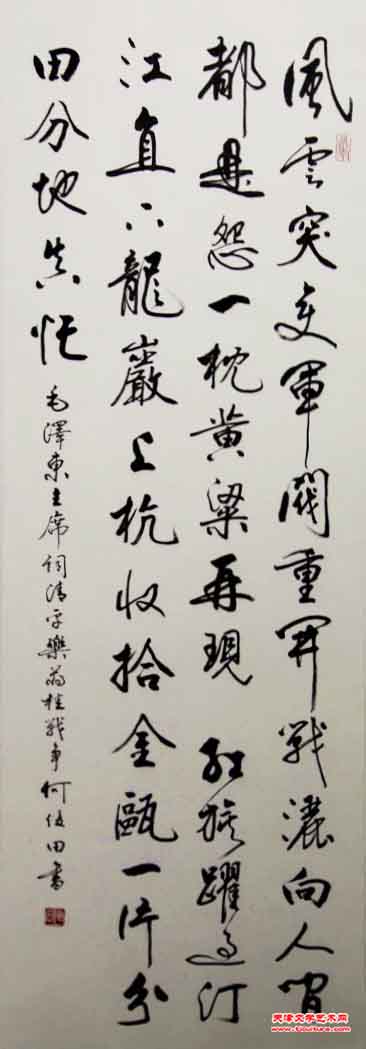 風雲突變軍閥重開戰灑向人間
都是怨一枕黃粱再現 紅旗躍過汀
江直下龍巖上杭收拾金甌一片分
田分地真忙
毛澤東主席詞清平樂蔣桂戰爭何俊田書
天津文学艺术网